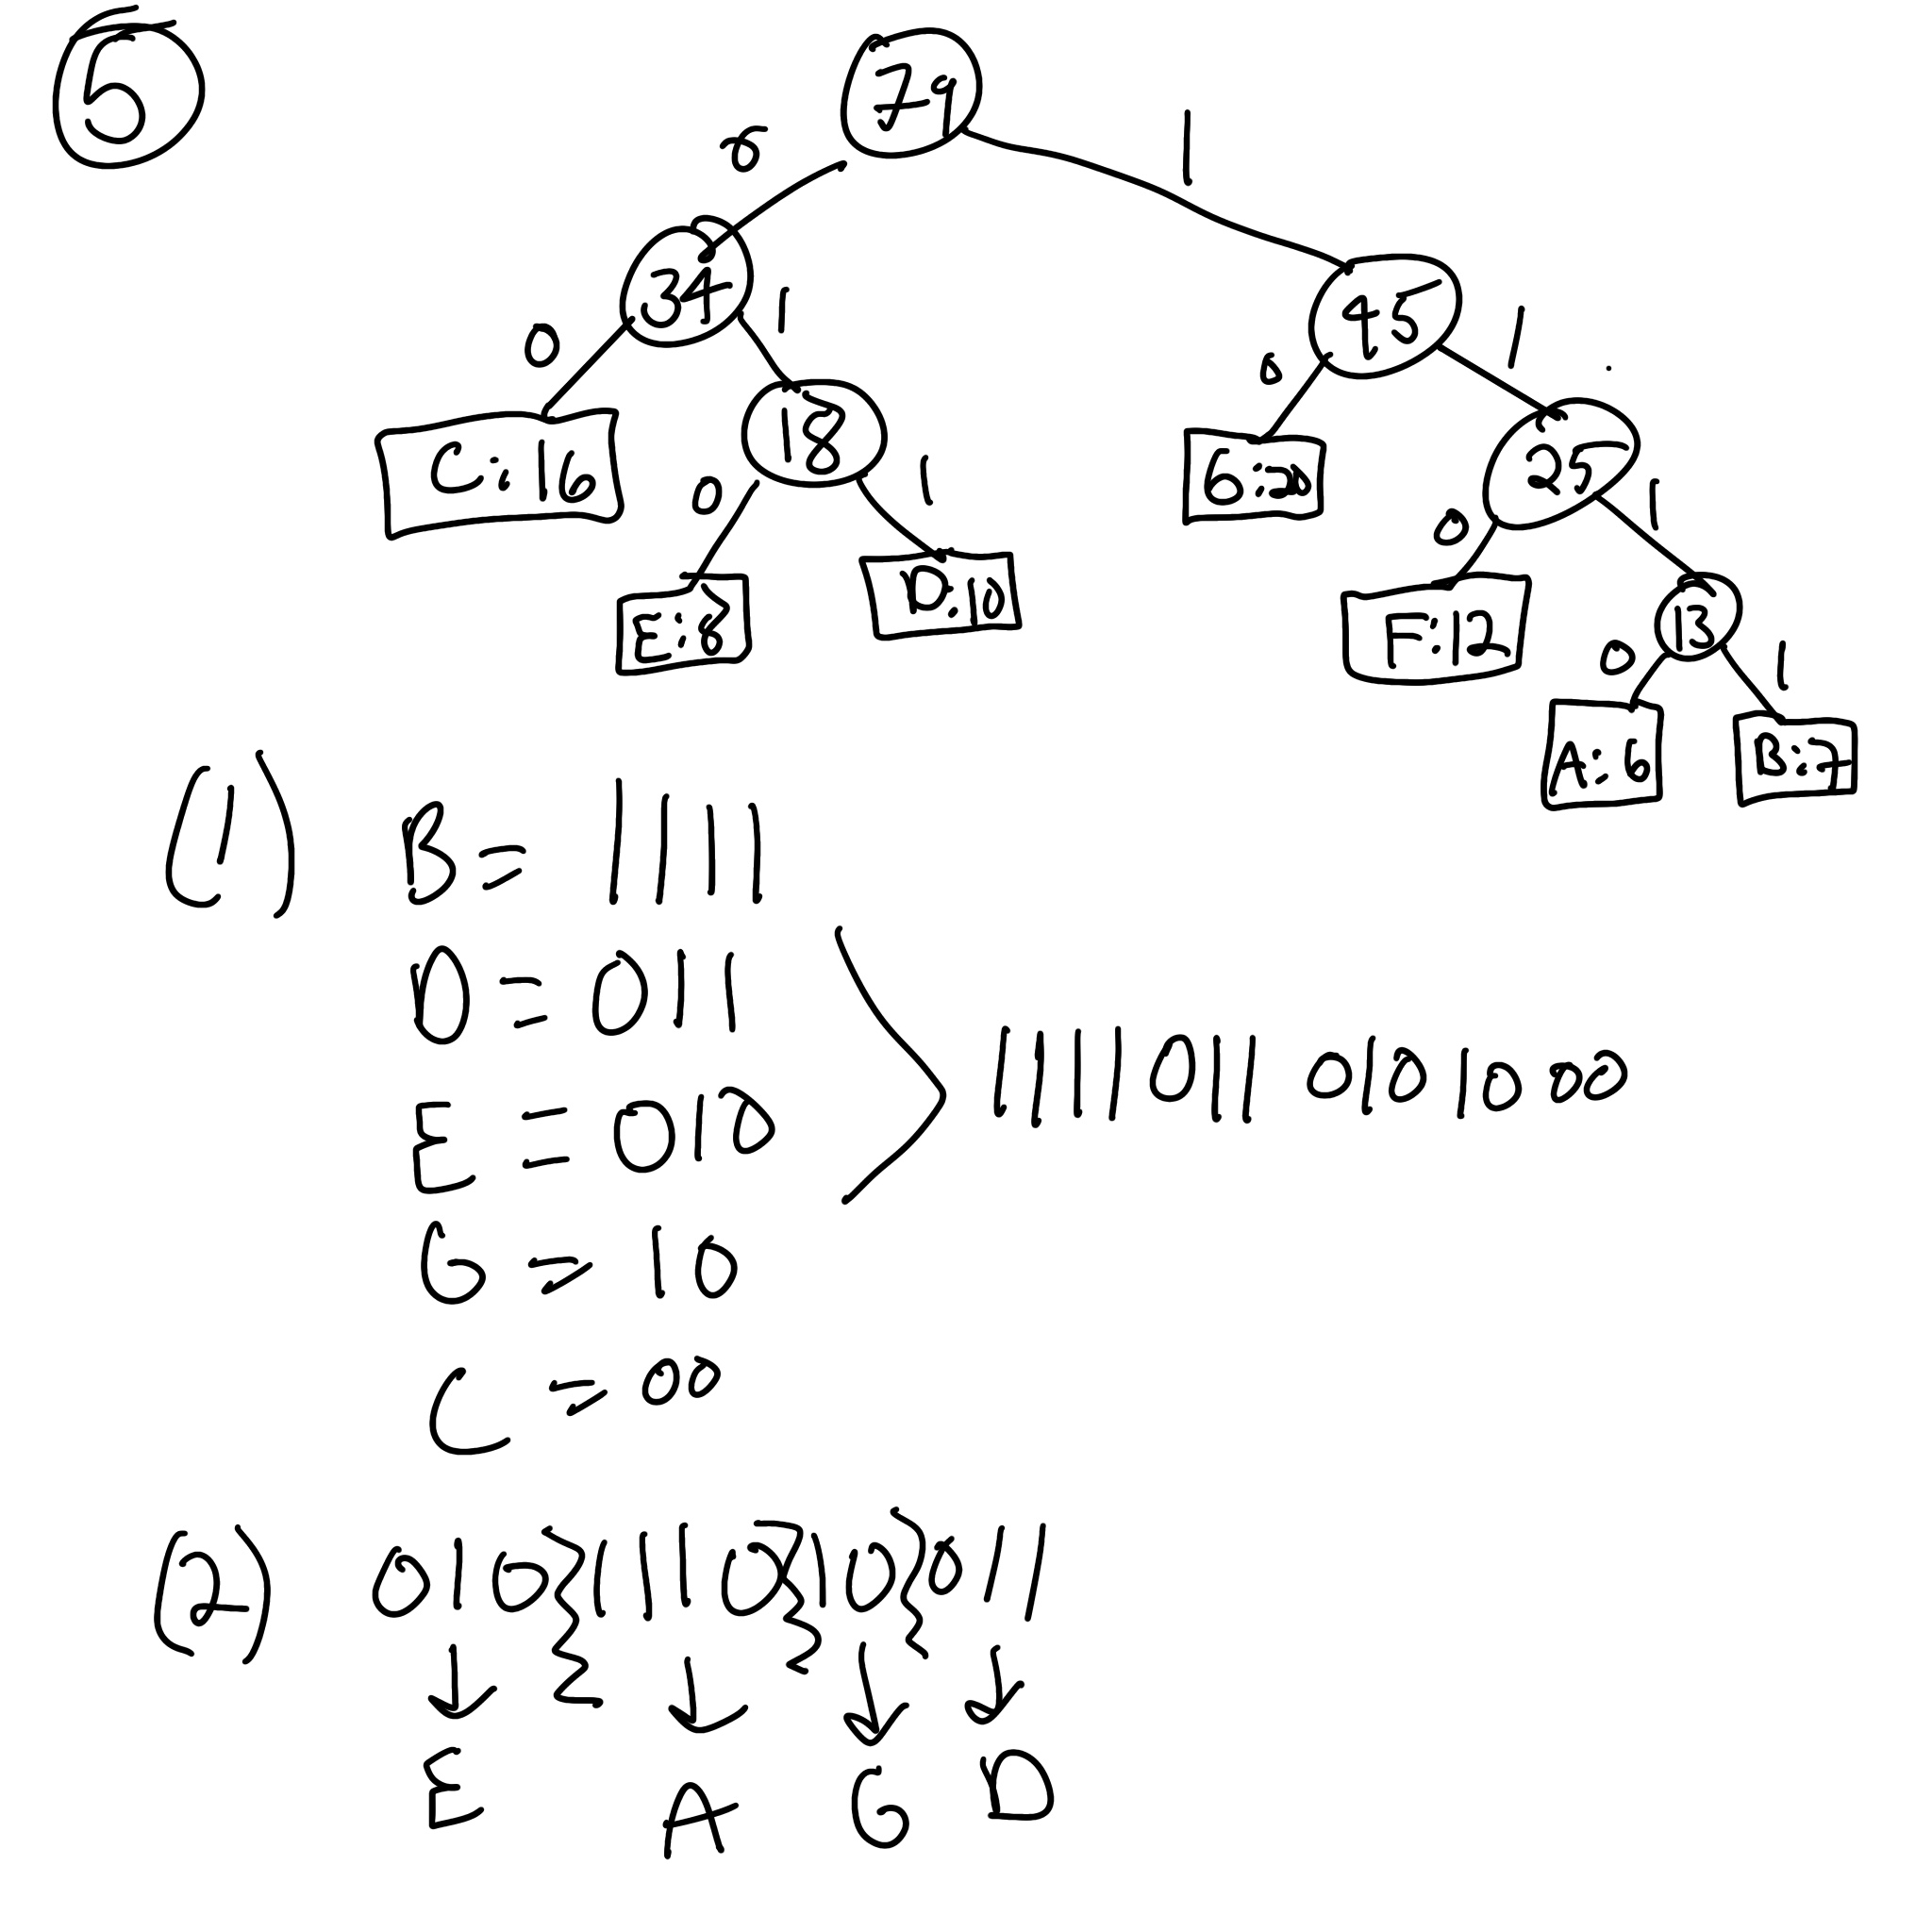 5
79
0 1
34 45
0 1 0 1
C:16 18 G:20 25
0 1 0 1
E:8 D:10 F:12 13
0 1
A:6 B:7
(1) B = 1111
D = 011
E = 010
1111 011 010 10 00
G = 10
C = 00
(2) 010 1110 10 011
E A G D